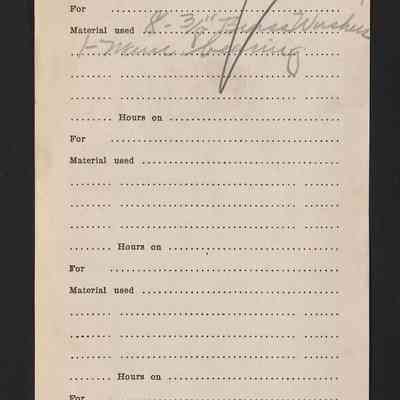 For
Material used 8 - 3/8" Brass Washers
1 -
Hours on
For
Material used
Hours on
For
Material used
Hours on
For